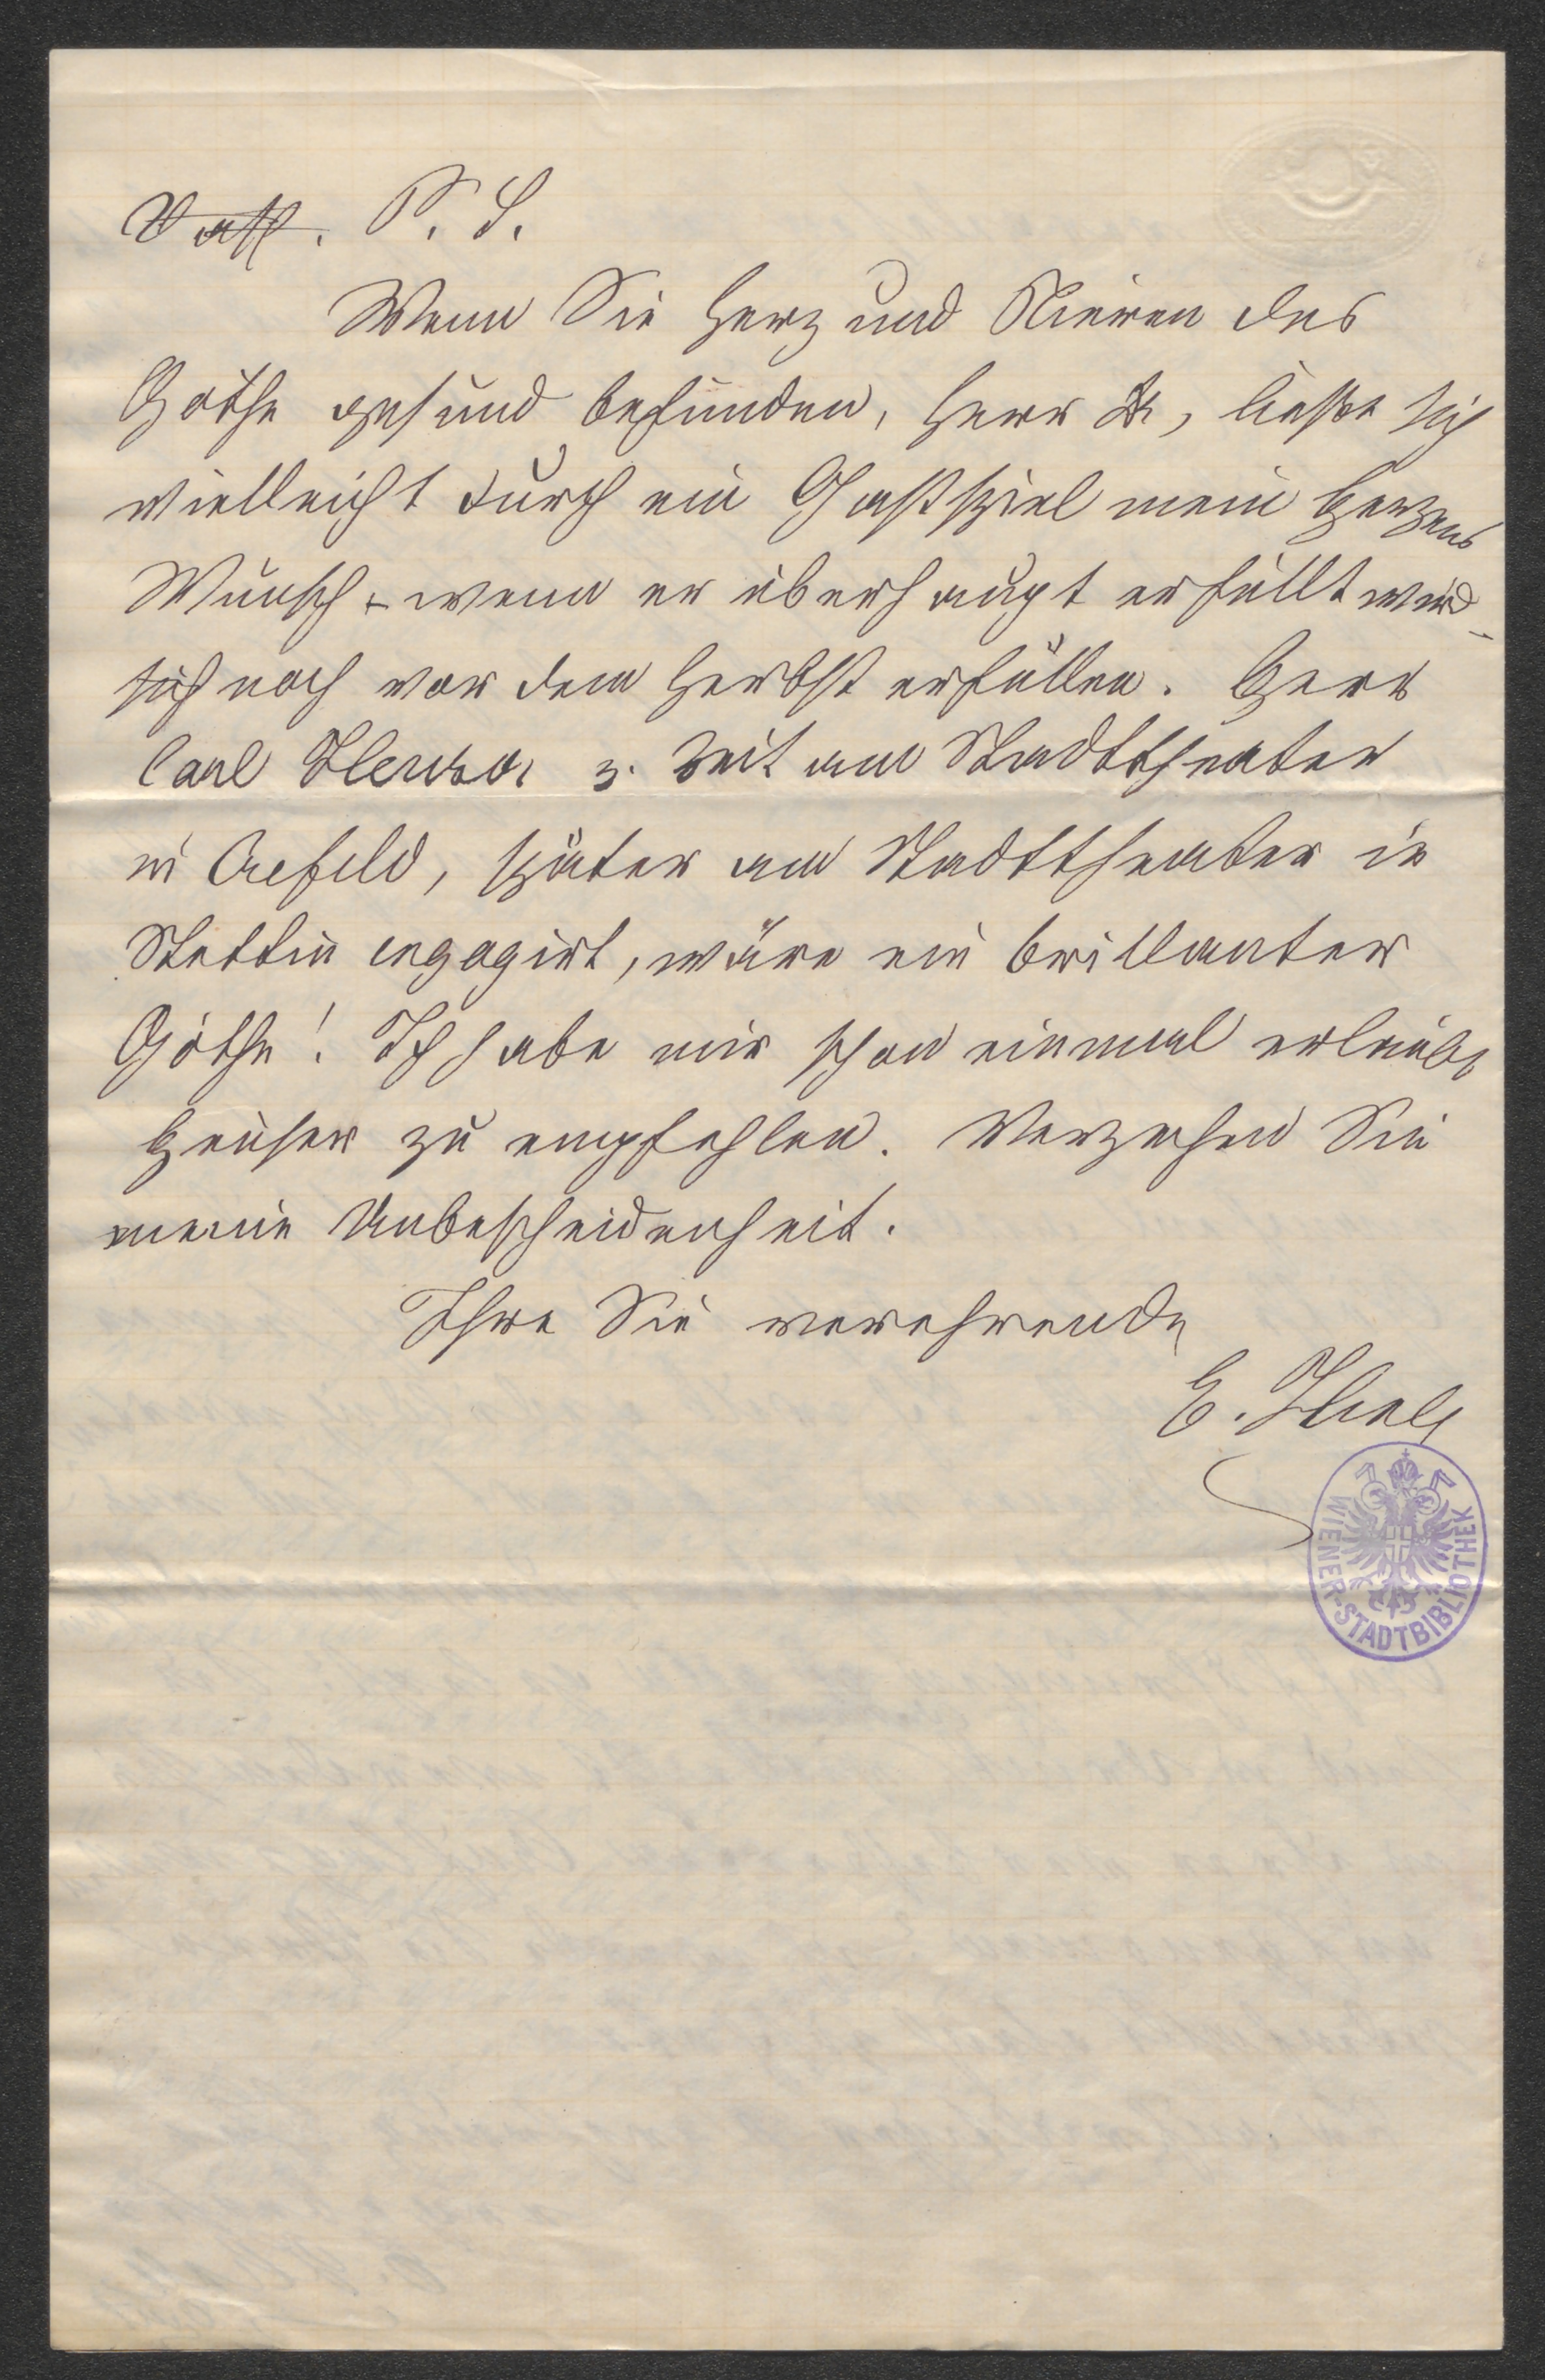 P. S.
Wenn Sie Herz und Nieren des
Göthe gesund befunden, Herr Dr, ließe sich
vielleicht durch ein Gastspiel mein Herzens
Wunsch - wenn er überhaupt erfüllt wird -
sich noch vor dem Herbst erfüllen. Herr
Carl z. Zeit am Stadttheater
in Crefeld, später am Stadttheater in
Stettin engagirt, wäre ein brillanter
Göthe! Ich habe mir schon einmal erlaubt
zu empfehlen. Verzeihen Sie
meine Unbescheidenheit.
Ihre Sie verehrende
E.
WIENER-STADTBIBLIOTHEK